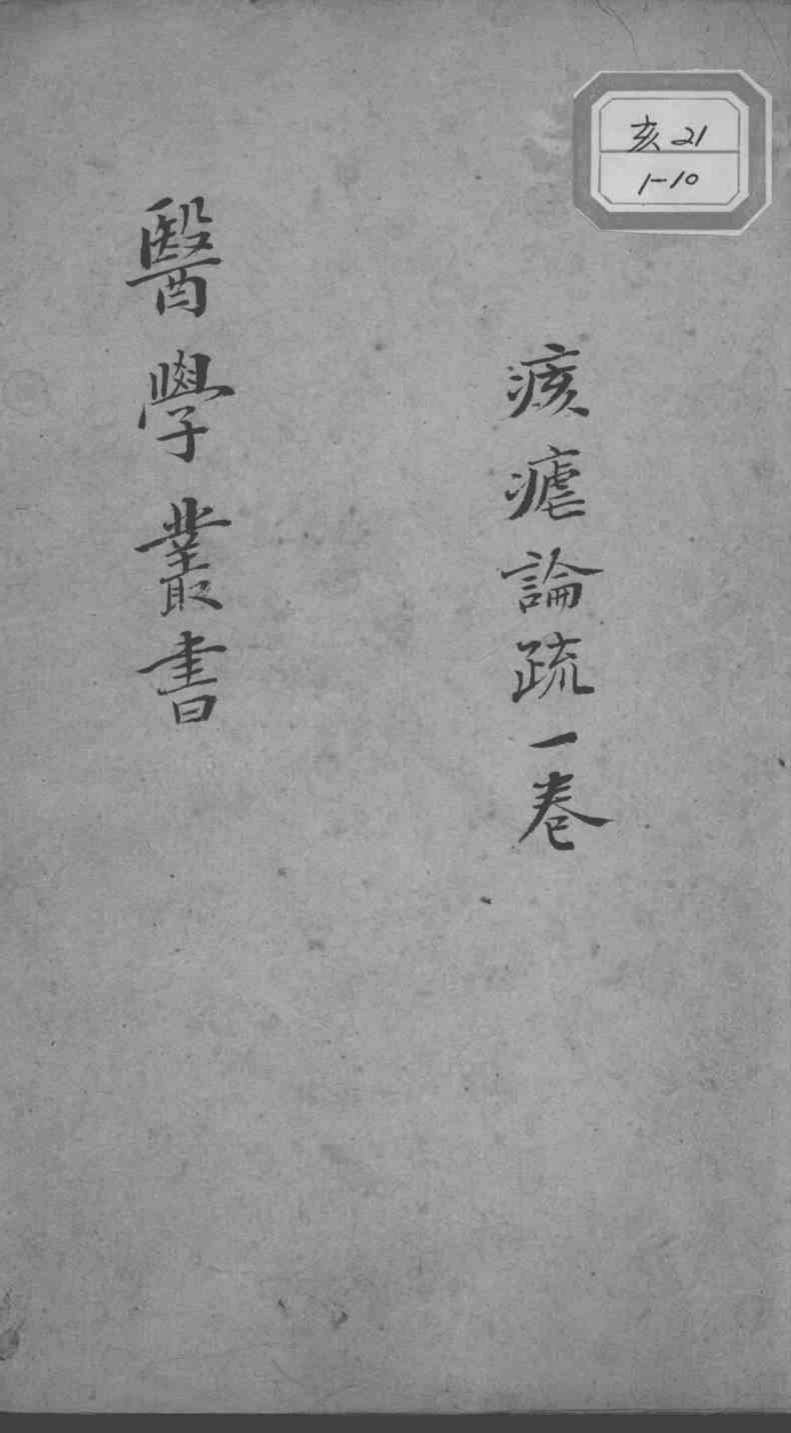 亥21
1-10
痎瘧論疏一卷
醫學叢書